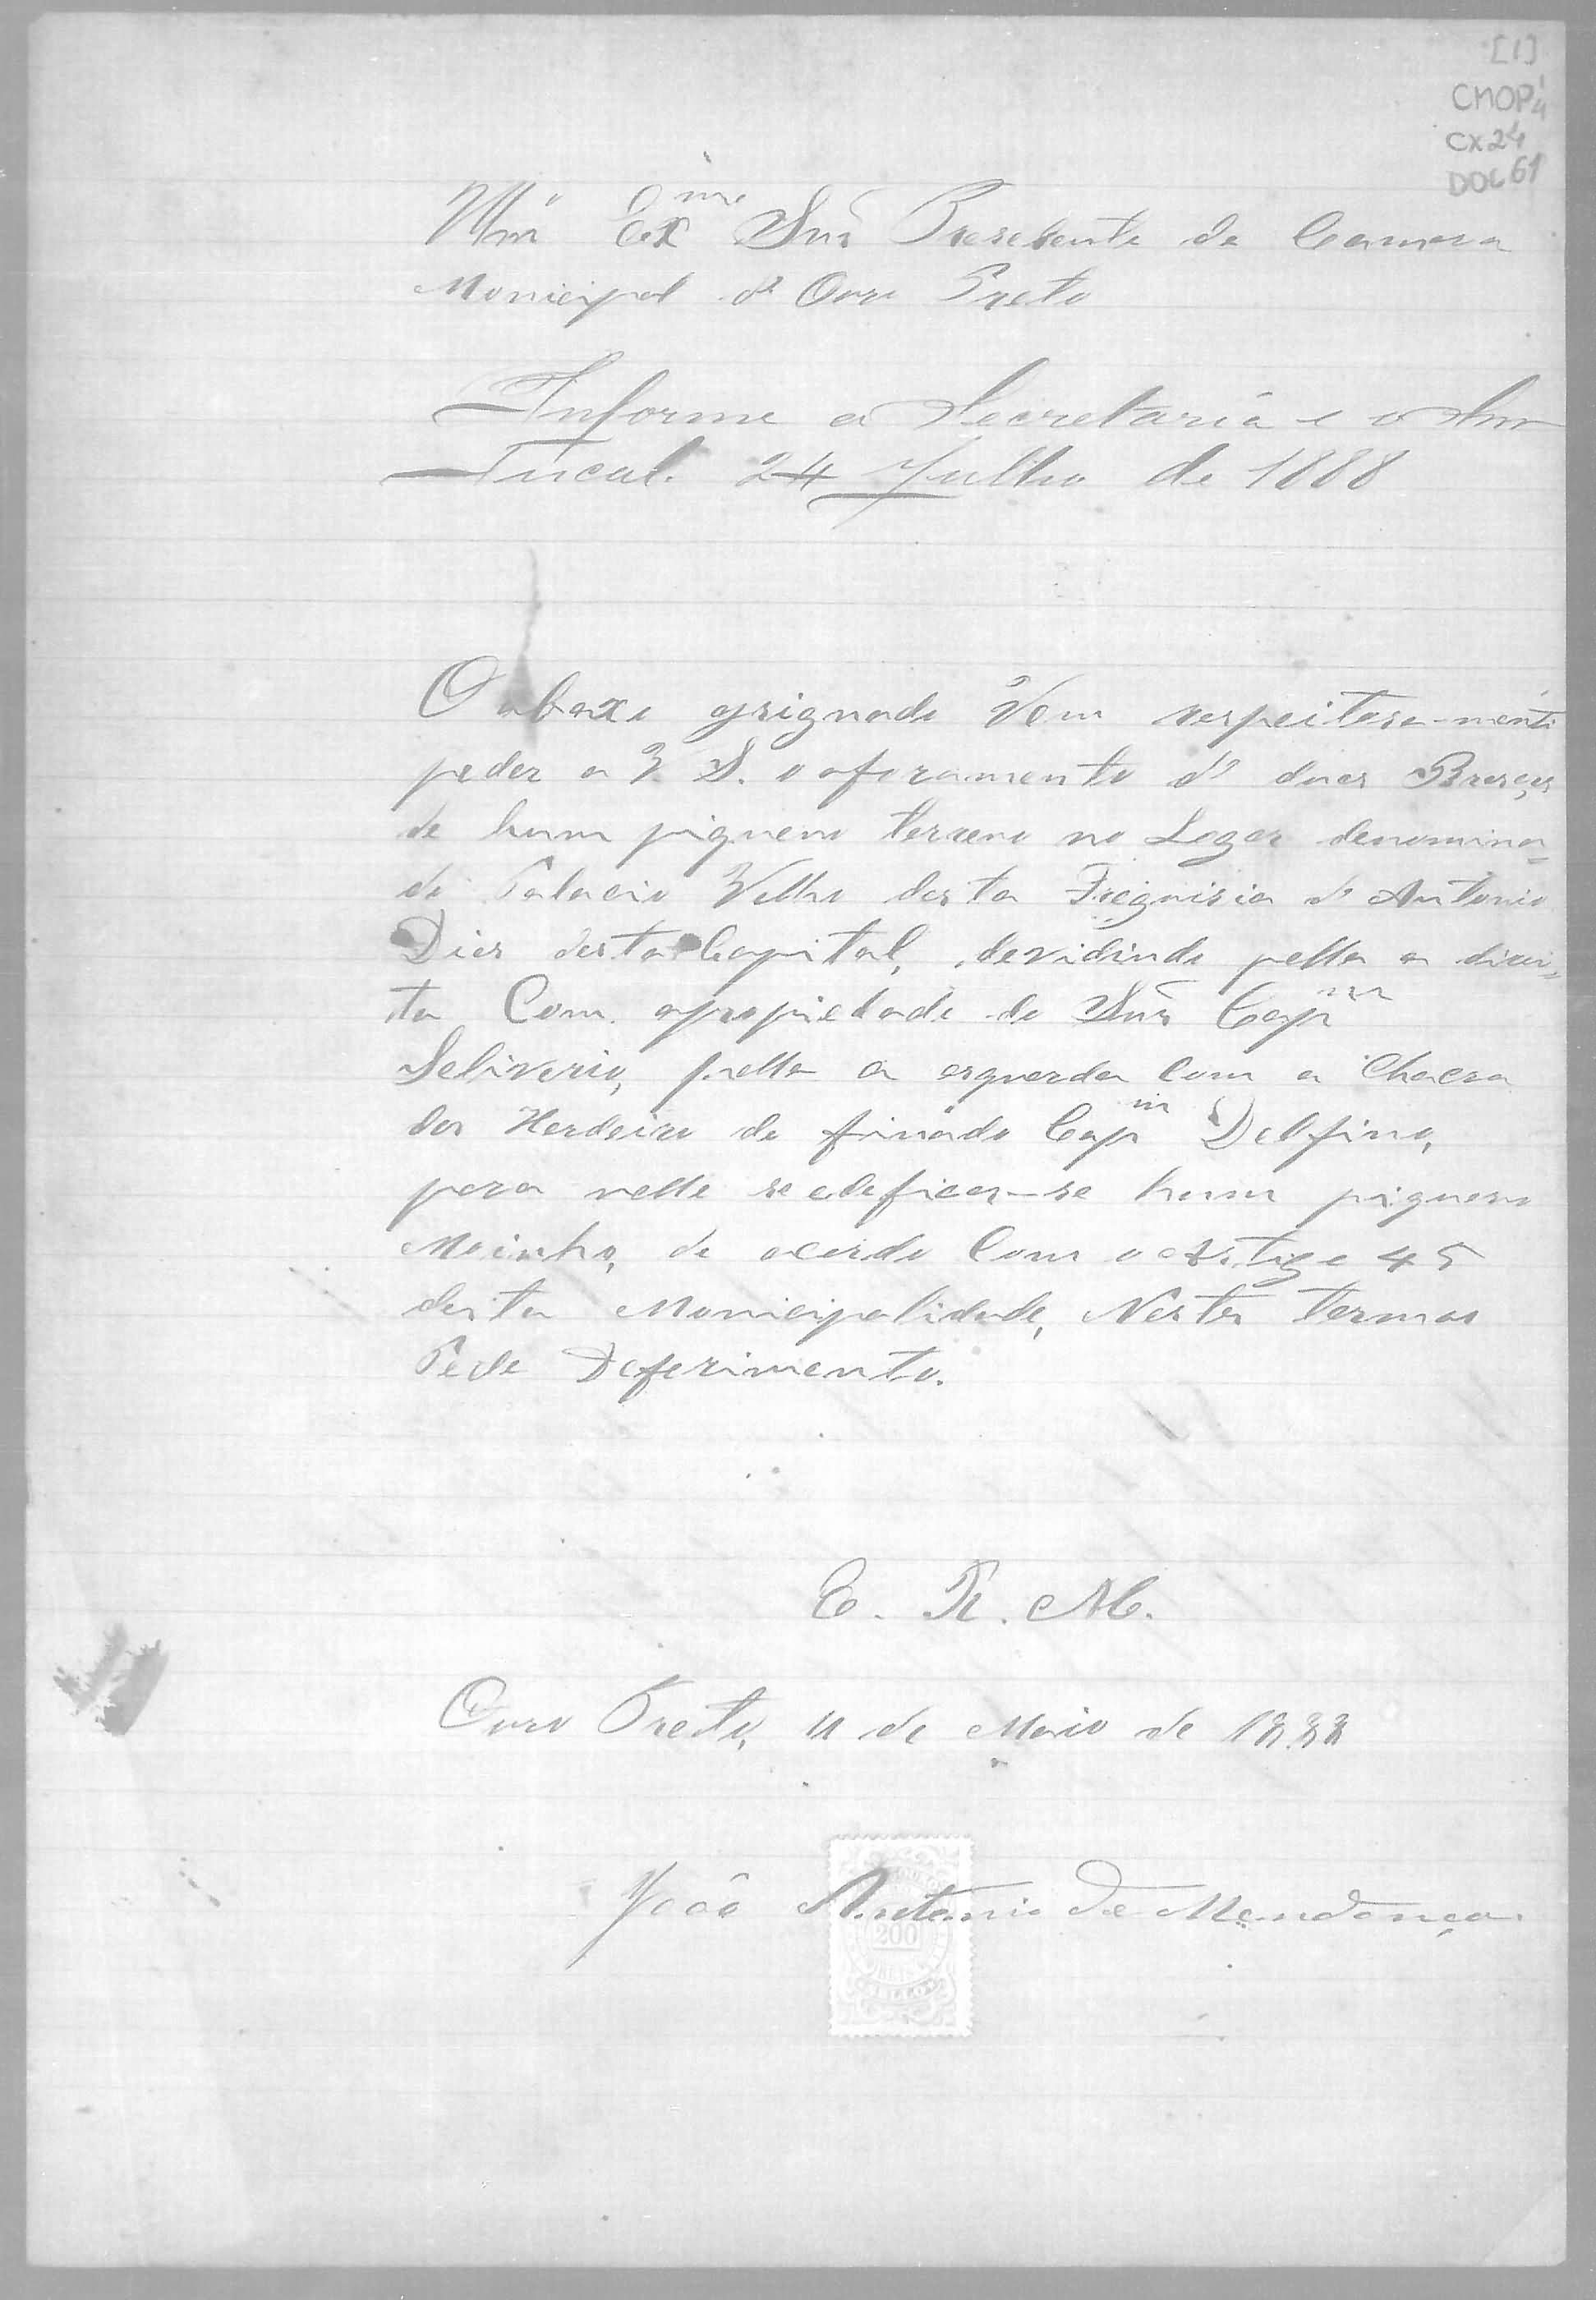 [1]
CMOP
CX24
DOC 61
Illm Exmo Snr Presedente da Camara
Municipal d' Ouro Preto
Informe a Secretaria e o Snr
Fiscal. 24 Julho de 1888
O abaxo asignado Vem respeitosa-mente
peder a V. S. o aforamento d' duas Braças
de hum piqueno terreno no Logar denomina=
do Palacio Velho desta Freguisia d' Antonio
Dias desta Capital, devidindo pella a direi=
ta Com apropiedade do Snr Capm
Seliverio, pella a esquerda Com a Chacra
dos Herdeiro do finado Capm Delfino,
para nelle se edeficar-se hum piqueno
Moinho, de acordo Com o Artigo 45
desta Municipalidade, Nestes termos
Pede Deferimento.
E. R. M.
Ouro Preto, 11 de Maio de 1888
João Antonio de Mendonça
200